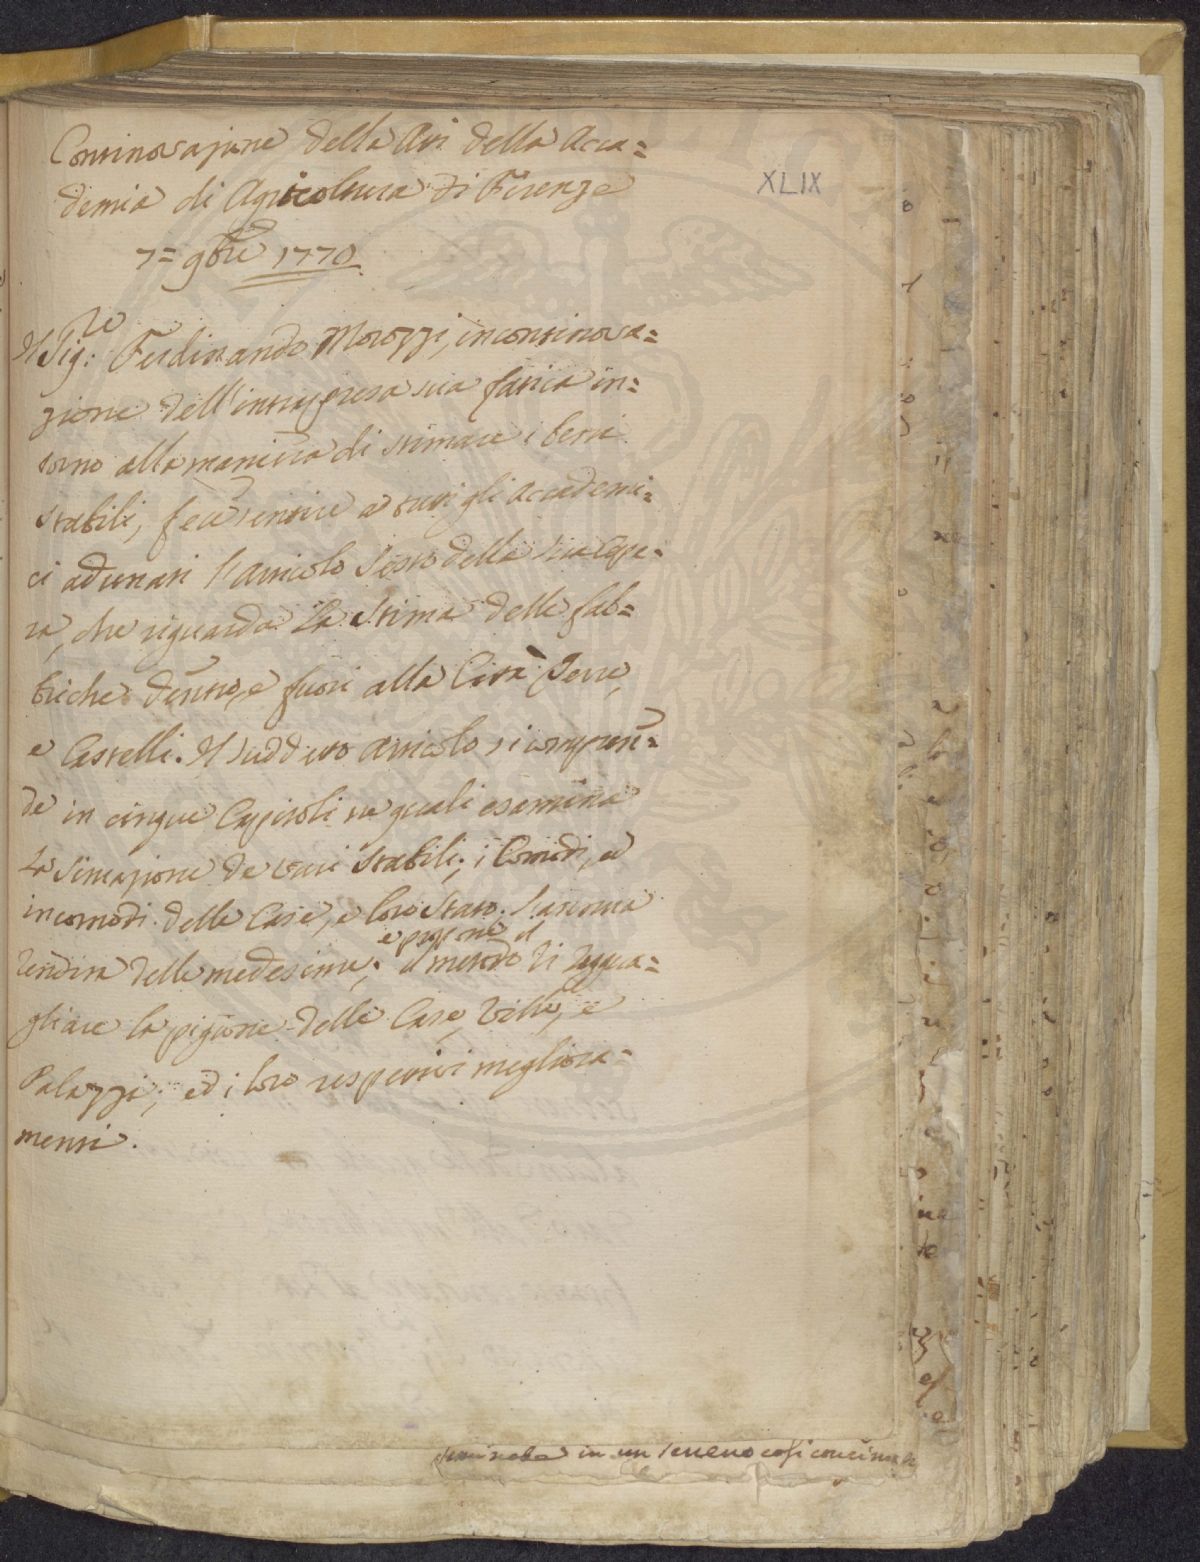 Continovazione della Atti della Acca=
demia di Agricoltura di Firenze
XLIX
7= 9bre 1770
Il Sig:re Ferdinando Morozzi, in continova=
zione dell'intrapresa sua fatica in=
torno alla maniera di stimare i beni
stabili, fece sentire a tutti gli Accademi=
ci adunati l'articolo Sesto della sua Ope=
ra, che riguarda la Stima delle fab=
briche dentro, e fuori alla Città, Terre,
e Castelli. Il suddetto articolo si compren=
de in cinque Capitoli ne quali esamina
La Situazione de vari Stabili; i Comodi, ed
incomodi delle Case, e loro Stato. l'annua
e propone il
rendita delle medesime; il metodo di Raggua=
gliare la pigione delle Case, Ville, e
Palazzi; ed i loro respettivi megliora=
menti.
seminata in un terreno così concimat